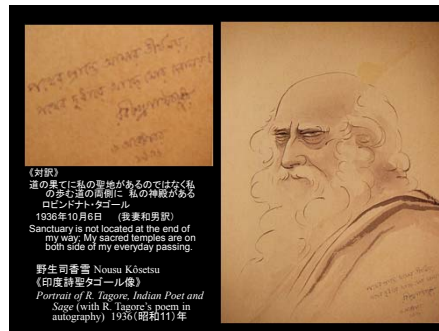 পথের প্রান্তে আমার তীর্থ নয়,
পথের দুধারে আছে মোর দেবালয়
《対訳》
道の果てに私の聖地があるのではなく私
の歩む道の両側に 私の神殿がある
ロビンドナト・タゴール
1936年10月6日 (我妻和男訳)
Sanctuary is not located at the end of
my way; My sacred temples are on
both side of my everyday passing.
野生司香雪 Nousu Kôsetsu
《印度詩聖タゴール像》
Portrait of R. Tagore, Indian Poet and
Sage (with R. Tagore's poem in
autography) 1936(昭和11)年